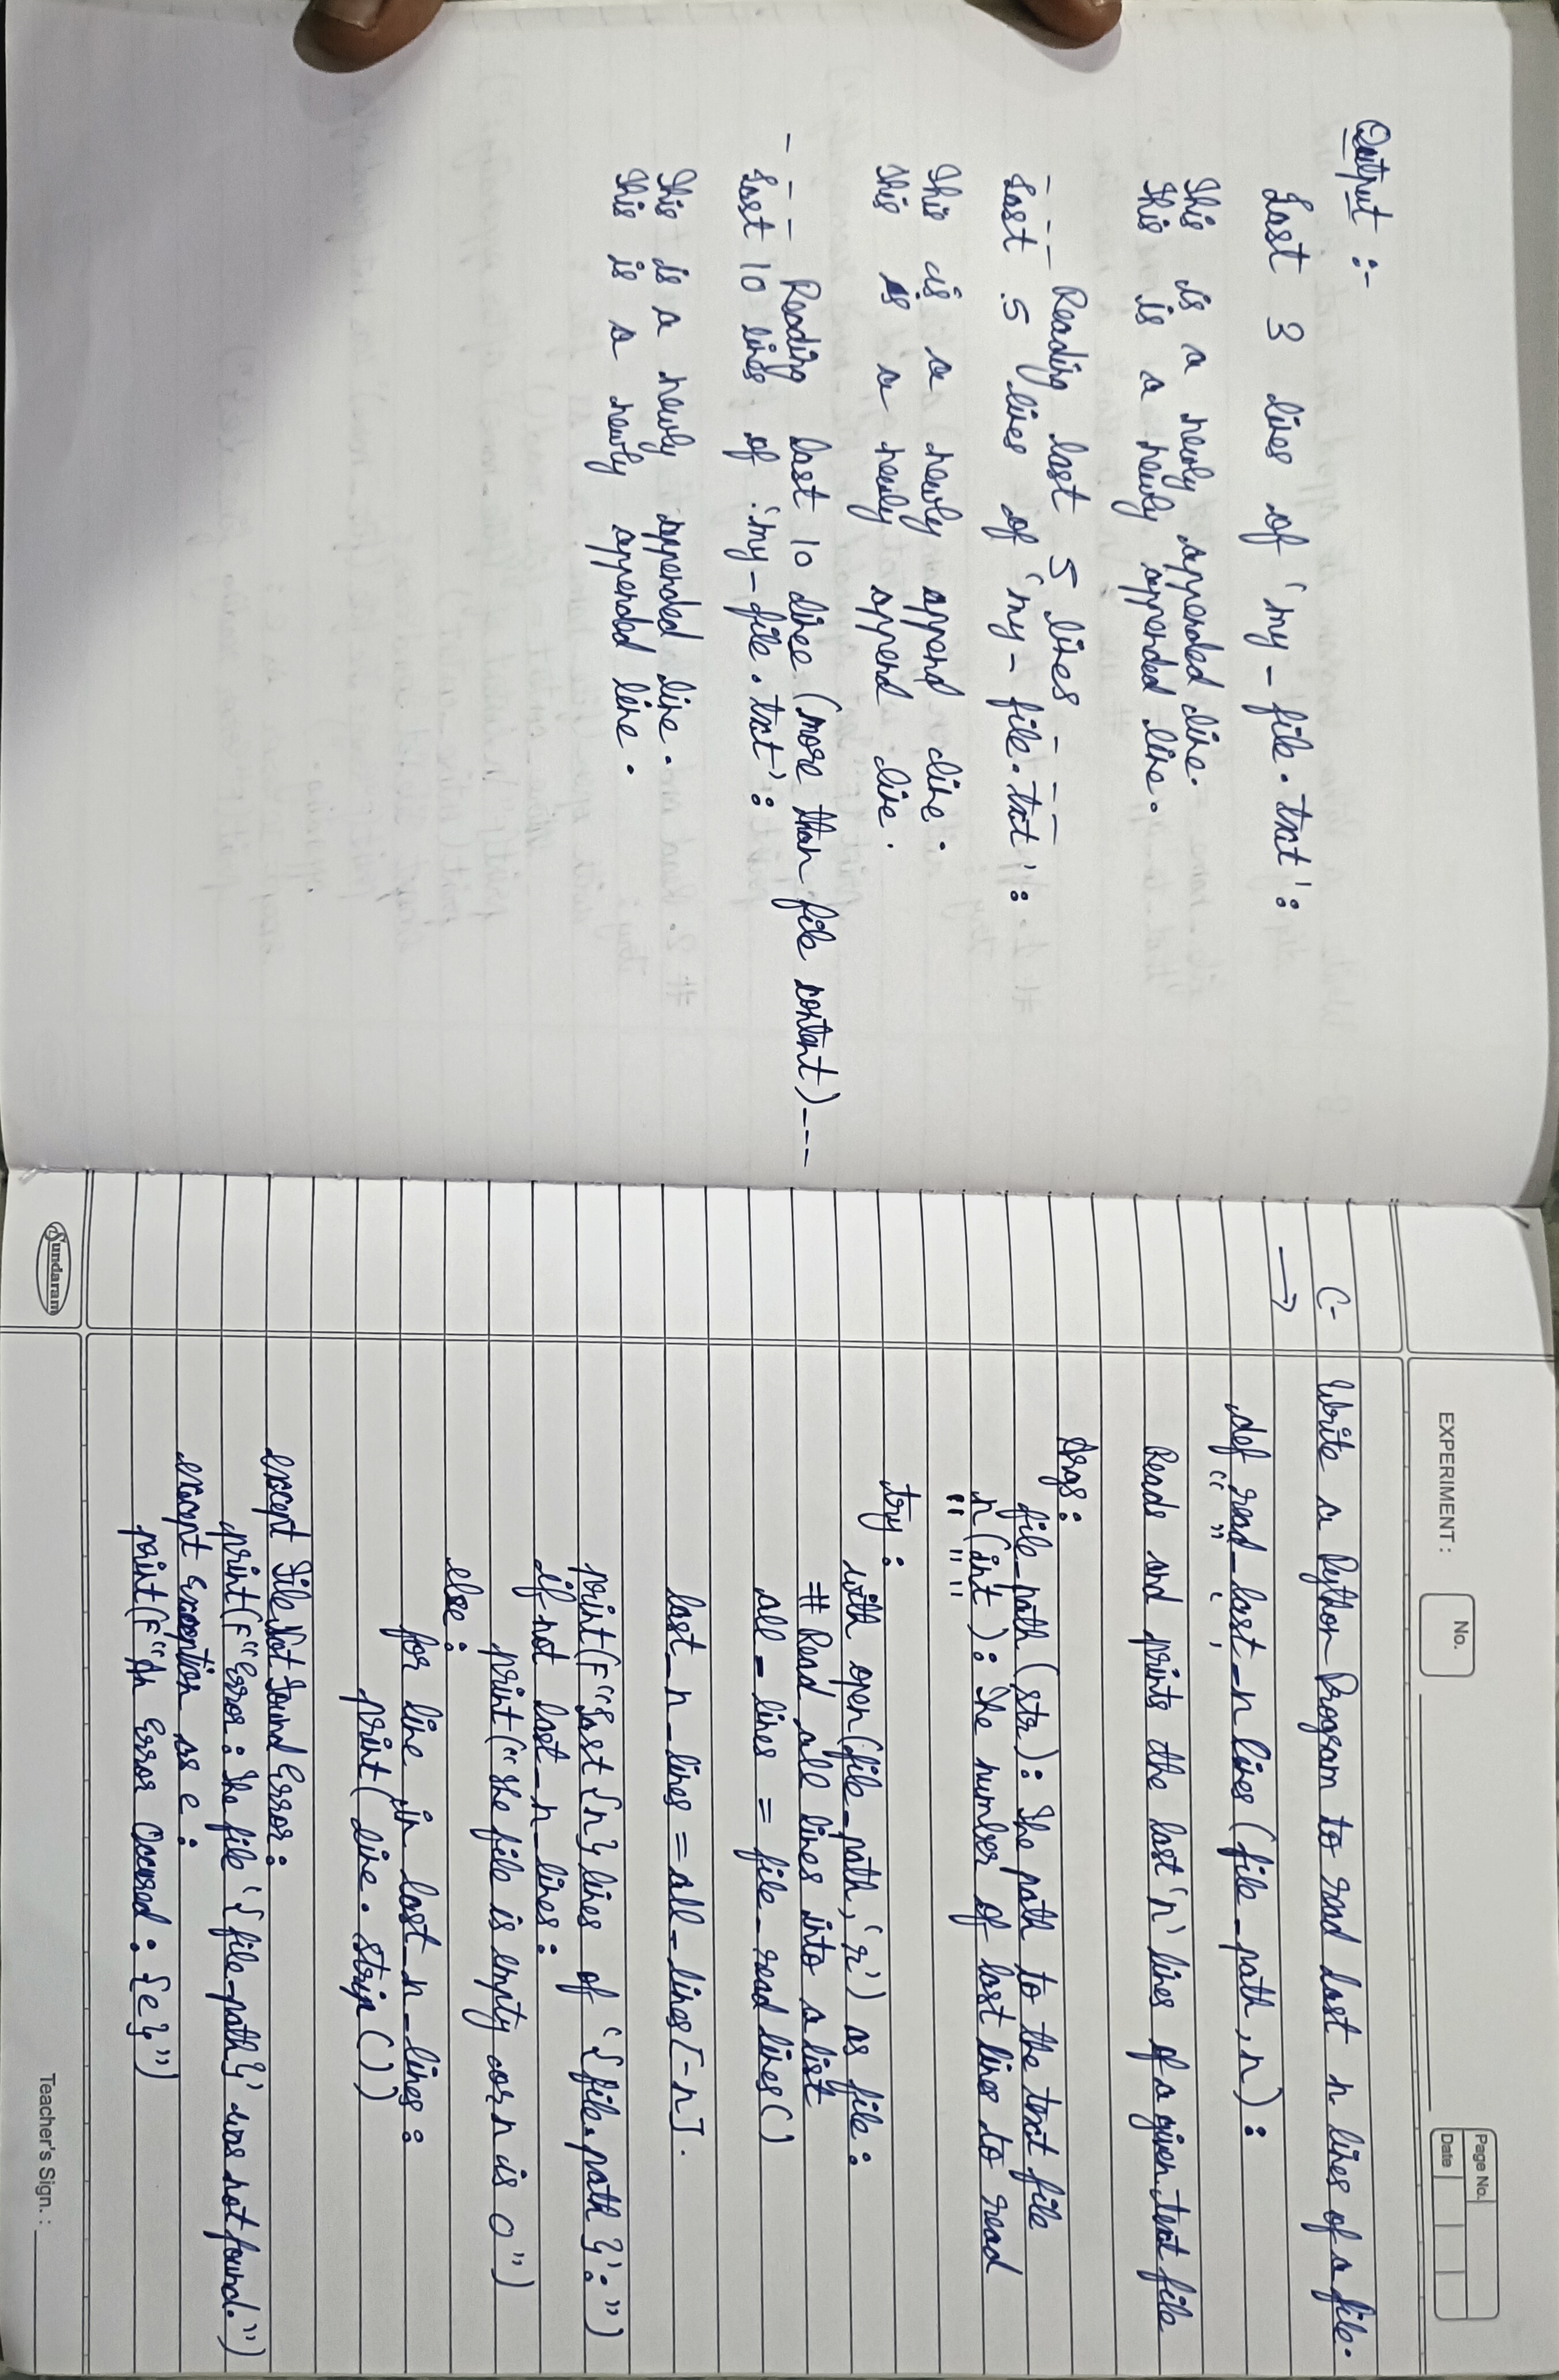 Output :-
Last 3 lines of 'my_file.txt':
This is a newly appended line.
This is a newly appended line.
--- Reading last 5 lines ---
Last 5 lines of 'my_file.txt':
This is a newly append line.
This is a newly append line.
--- Reading last 10 lines (more than file content)---
Last 10 lines of 'my_file.txt':
This is a newly appended line.
This is a newly appended line.
EXPERIMENT :
No.
Page No.
Date
C- Write a Python Program to read last n lines of a file.
→
def read_last_n lines (file_path, n) :
“ ” ‘ ’
Reads and prints the last 'n' lines of a given text file
Args :
file_path (str) : The path to the text file
n (int ) : The number of last lines to read
" " "
try :
with open(file_path, 'r') as file :
# Read all lines into a list
all_lines = file_read lines ()
last_n_lines = all_lines [-n].
print(F"Last {n} lines of '{file.path}':")
if not last_n_lines :
print("The file is empty or n is 0")
else :
for line in last_n_lines :
print( line . strip ())
except File Not Found Error :
print(F"Error : The file '{file-path}' was not found.")
except Exception as e :
print(F"An Error Occured : {e}")
Sundaram
Teacher's Sign. :